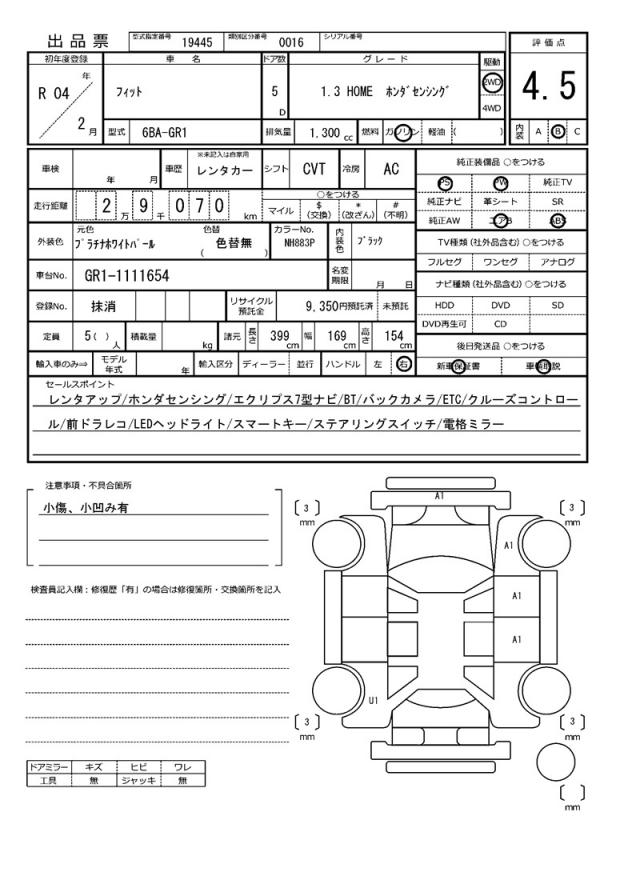 出品票
型式指定番号 19445 類別区分番号 0016 シリアル番号
評価点
4.5
内装 A B C
初年度登録 車名 ドア数 グレード 駆動
R 04 年 2 月
フィット
5 D
1.3 HOME ホンダセンシング
2WD
4WD
型式 6BA-GR1 排気量 1.300 cc 燃料 ガソリン 軽油 ( )
車検 年 月 車歴 ※未記入は自家用 レンタカー シフト CVT 冷房 AC
走行距離 2 万 9 千 0 7 0 km
○をつける
マイル $(交換) *(改ざん) #(不明)
外装色 元色 プラチナホワイトパール 色替 ( 色替無 ) カラーNo. NH883P 内装色 ブラック
車台No. GR1-1111654 名変期限 月 日
登録No. 抹消 リサイクル預託金 9,350円預託済 未預託
定員 5( ) 人 積載量 kg 諸元 長さ 399 cm 幅 169 cm 高さ 154 cm
輸入車のみ⇒ モデル年式 年 輸入区分 ディーラー 並行 ハンドル 左 右
純正装備品 ○をつける
PS PW 純正TV
純正ナビ 革シート SR
純正AW エアB ABS
TV種類(社外品含む) ○をつける
フルセグ ワンセグ アナログ
ナビ種類(社外品含む) ○をつける
HDD DVD SD
DVD再生可 CD
後日発送品 ○をつける
新車保証書 車輌取説
セールスポイント
レンタアップ/ホンダセンシング/エクリプス7型ナビ/BT/バックカメラ/ETC/クルーズコントロー
ル/前ドラレコ/LEDヘッドライト/スマートキー/ステアリングスイッチ/電格ミラー
注意事項・不具合箇所
小傷、小凹み有
検査員記入欄：修復歴「有」の場合は修復箇所・交換箇所を記入
ドアミラー キズ ヒビ ワレ
工具 無 ジャッキ 無
A1
[ 3 ] mm
[ 3 ] mm
A1
A1
A1
U1
[ 3 ] mm
[ 3 ] mm
[ ] mm